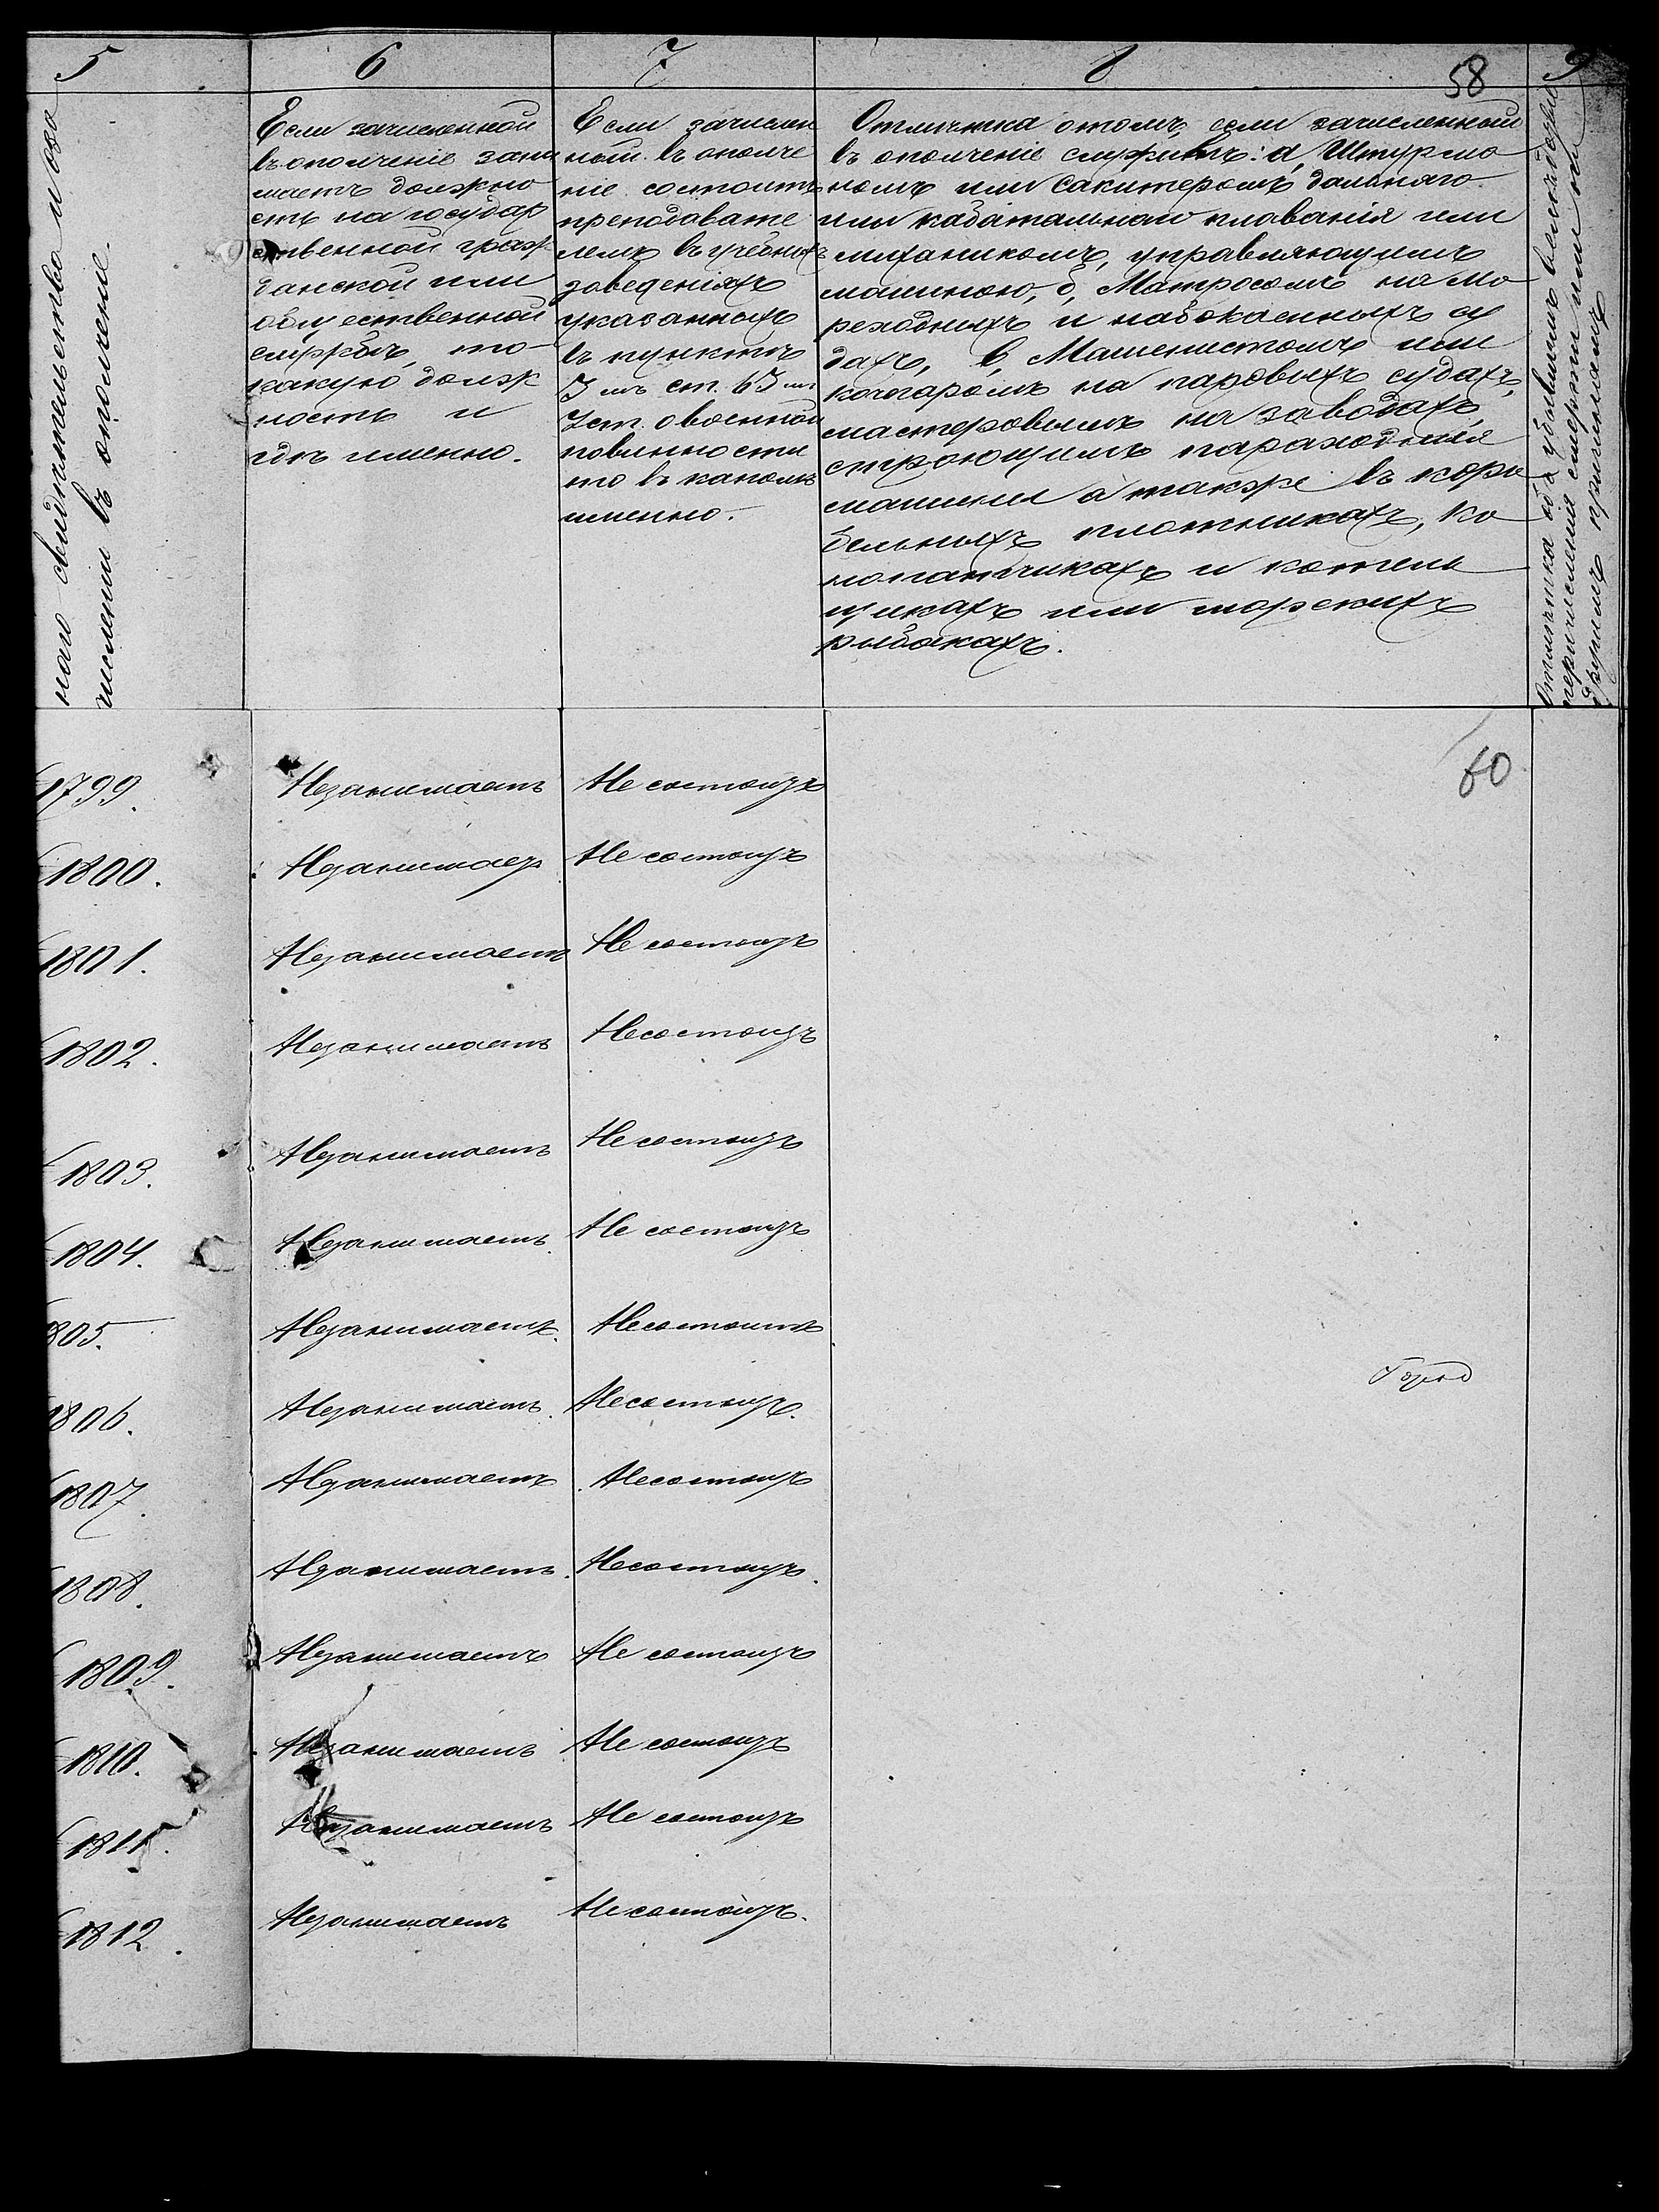 5
6
7
8
58
9
наго свидѣтельства и ова
числѣнии въ ополчение.
Если зачисленной
въ ополченіе зани
маетъ должно
сть на государ
ственной граж
данской или
общественной
службѣ, то
какую долж
ность и
гдѣ именно.
Если зачислен
ный въ ополче
ніе состоитъ
преподавате
лемъ въ учебныхъ
заведеніяхъ
указанныхъ
въ пунктѣ
3 мъ ст. 63 ит
Уст. о военной
повинности
то въ какомъ
именно.
Отмѣтка отомъ, если зачисленный
въ ополченіе служитъ: а, Штурмо
номъ или Сакитеромъ дальняго
или кабатальнаго плаванія или
михаником, управляющимъ
машиною, б, Матросомъ на мо
реходныхъ и кабокасныхъ су
дахъ, в, Машенистомъ или
кочегаромъ на паровыхъ судахъ,
мастеровымъ на заводахъ,
строющимъ параходныя
машины а также въ кора
бельныхъ плотникахъ, ко
нопатчикахъ и котель
щикахъ или морскихъ
рыбакахъ.
Отмѣтка объ убывшихъ
перечисления смерти или по
другимъ причинамъ
60
1799. Незанимаетъ Не состоитъ
1800. Незанимаетъ Не состоитъ
1801. Незанимаетъ Не состоитъ
1802. Незанимаетъ Несостоитъ
1803. Незанимаетъ Не состоитъ
1804. Незанимаетъ. Не состоитъ
805. Незанимаетъ. Несостоитъ
1806. Незанимаетъ. Несостоитъ.
1807. Незанимаетъ Несостоитъ
1808. Незанимаетъ. Несостоитъ.
1809. Незанимаетъ Не состоитъ
1810. Незанимаетъ Не состоитъ
1811. Незанимаетъ Не состоитъ
1812. Незанимаетъ Не состоитъ.